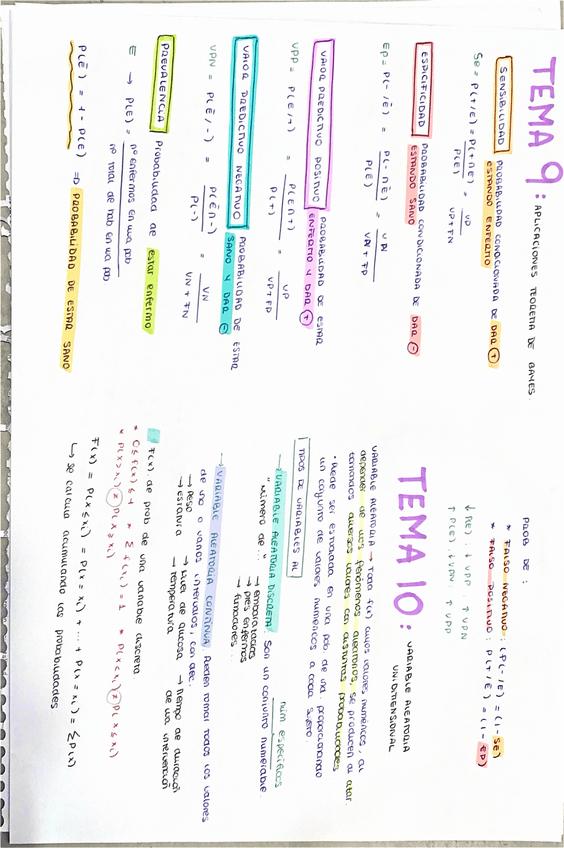 TEMA 9: APLICACIONES TEOREMA DE BAYES.
SENSIBILIDAD PROBABILIDAD CONDICIONADA DE DAR (+)
ESTANDO ENFERMO
Se = P(+/E) = P(+∩E) / P(E) = VP / VP+FN
ESPICIFICIDAD PROBABILIDAD CONDICIONADA DE DAR (-)
ESTANDO SANO
EP = P(-/Ē) = P(-∩Ē) / P(Ē) = VN / VN+FP
VALOR PREDICTIVO POSITIVO PROBABILIDAD DE ESTAR
ENFERMO Y DAR (+)
VPP = P(E/+) = P(E∩+) / P(+) = VP / VP+FP
VALOR PREDICTIVO NEGATIVO PROBABILIDAD DE ESTAR
SANO Y DAR (-)
VPN = P(Ē/-) = P(Ē∩-) / P(-) = VN / VN+FN
PREVALENCIA Probabilidad de estar enfermo
E → P(E) = nº enfermos en una pob / nº total de hab en una pob
P(Ē) = 1 - P(E) ⇒ PROBABILIDAD DE ESTAR SANO
PROB DE:
* FALSO NEGATIVO: (P(-/E) = (1-SE)
* FALSO POSITIVO: P(+/Ē) = (1-EP)
↓P(E): ↓VPP ↑VPN
↑P(E): ↓VPN ↑VPP
TEMA 10: VARIABLE ALEATORIA
UNIDIMENSIONAL
VARIABLE ALEATORIA → Toda f(x) cuyos valores numéricos, al
depender de unos fenómenos aleatorios, se producen al azar.
tomando diversos valores con distintas probabilidades
• Puede ser estudiada en una pob. de una proporcionando
un conjunto de valores numéricos a cada sujeto.
TIPOS DE VARIABLES AL
→ VARIABLE ALEATORIA DISCRETA: Son un conjunto numerable.
núm específicos
"número de..." → embarazadas
→ pies enfermos
→ fumadores...
→ VARIABLE ALEATORIA CONTINUA: Pueden tomar todos los valores
de uno o varios intervalos, con dec.
→ peso → nivel de glucosa → tiempo de duración
→ estatura → temperatura de una intervención
F(x). de prob de una variable discreta
* 0≤f(x)≤1 * Σf(xi)=1 * P(x<xi)≠P(x≤xi)
* P(x>xi)≠P(x≥xi)
F(x) = P(x≤xi) = P(x=x1)+...+P(x=xi) = ΣP(x)
↳ se calcula acumulando las probabilidades